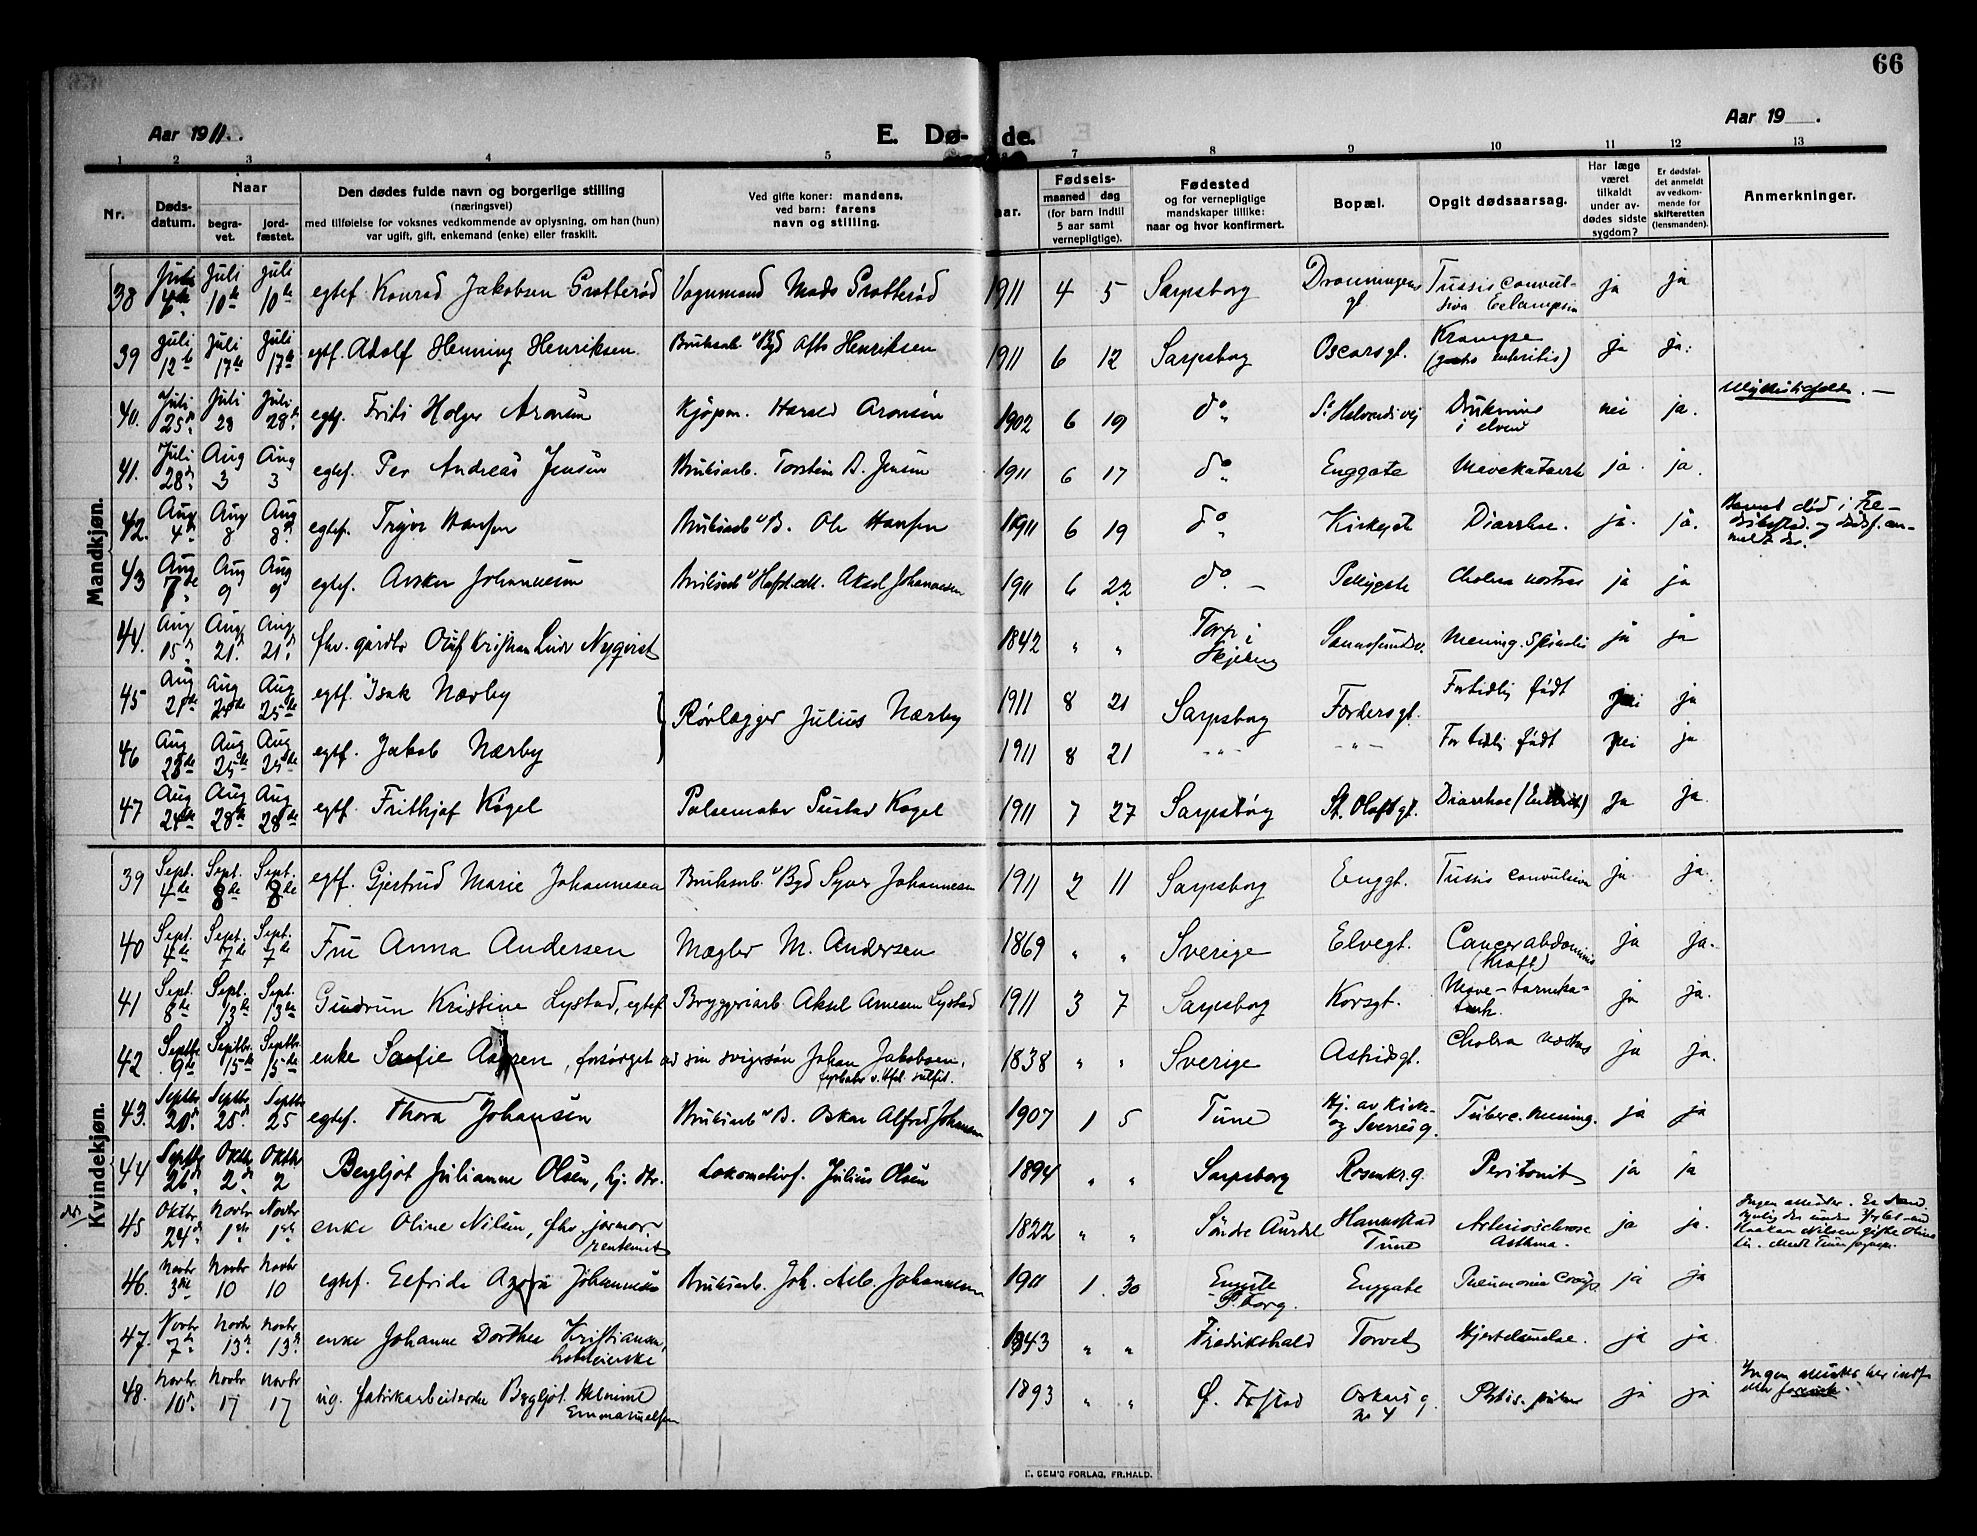 66
Aar 1911.
E. Døde.
Aar 19 .
1 2 3 4 5 6 7 8 9 10 11 12 13
Nr.
Døds-
datum.
Naar
begra-
vet.
jord-
fæstet.
Den dødes fulde navn og borgerlige stilling
(næringsvei)
med tilføielse for voksnes vedkommende av oplysning, om han (hun)
var ugift, gift, enkemand (enke) eller fraskilt.
Ved gifte koner: mandens,
ved barn: farens
navn og stilling.
aar.
Fødsels-
maaned dag
(for barn indtil
5 aar samt
vernepligtige).
Fødested
og for vernepligtige
mandskaper tillike:
naar og hvor konfirmert.
Bopæl.
Opgit dødsaarsag.
Har læge
været
tilkaldt
under av-
dødes sidste
sygdom?
Er dødsfal-
det anmeldt
av vedkom-
mende for
skifteretten
(lensmanden).
Anmerkninger.
Mandkjøn.
38 Juli 4de Juli 10de Juli 10de egtef. Konrad Jakobsen Grøtterød Vognmand Mads Grøtterød 1911 4 5 Sarpsborg Dronningens gt Tussis convulsiva Eclampsia ja ja
39 Juli 12te Juli 17de Juli 17de egtf. Adolf Henning Henriksen Bruksarb v Byd Henriksen 1911 6 12 Sarpsborg Oscarsgt. Krampe ja ja.
40. Juli 25d Juli 28 Juli 28d egtf. Frits Holger Aronsen Kjøpm. Harald Aronsen 1902 6 19 do St Halvardsvej Drukning i elven nei ja. Ulykkestilfælde. —
41. Juli 28d Aug 3 Aug 3 egtef. Per Andreas Jensen Bruksarb. Torstein A. Jensen 1911 6 17 do Enggate Mavekatarrh ja. ja.
42. Aug 4d Aug 8 Aug 8d egtef. Trygve Hansen Bruksarb v B. Ole Hansen 1911 6 19 do Kirkegate Diarrhoe. ja. ja.
43 Aug 7de Aug 9 Aug 9 egtef. Johannesen Bruksarb v Aksel Johannesen 1911 6 22 do — Pellygate Cholera nostras ja ja
44. Aug 15d Aug 21. Aug 21d fhv. gårdbr Oluf Kristian Nyqvist 1842 " " Torp i Skjeberg Sannesundsv. Mening. spinalis ja ja
45 Aug Aug Aug 25de egtf. Isak Nærby 1911 8 21 Sarpsborg Fortidlig født nei ja
Rørlægger Julius Nærby
46 Aug 23de Aug 25de Aug 25de egtf. Jakob Nærby 1911 8 21 - " - - " - For tidlig født nei ja
47 Aug 24de Aug 28de Aug 28de egtf. Frithjof Kögel Pølsemaker Gustav Kögel 1911 7 27 Sarpsborg St. Olafsgt. Diarrhoe ja ja.
Kvindekjøn.
39 Sept. 4de Sept. 8de Sept. 8de egtf. Gjertrud Marie Johannesen Bruksarb. v Byd Syver Johannesen 1911 2 11 Sarpsborg Enggt. Tussis convulsiva ja ja.
40 Sept. 4de Sept. 7de Sept. 7de Fru Anna Andersen Mægler M. Andersen 1869 " " Sverige Elvegt. Cancer abdominis (Kræft) ja ja.
41 Sept. 8de Sept. 13de Sept. 13de Gudrun Kristine Lystad, egtef. Bryggeriarb. Aksel Arnesen Lystad 1911 3 7 Sarpsborg Korsgt. Mave-tarmkatarrh. ja ja.
42 Septbr. 9de Septbr. 15de Septbr. 15de enke Sofie, forsørget av sin svigersøn Johan Jakobsen, fyrbøter v. Hfsl. sulfit. 1838 " " Sverige Astridsgt. Cholera nostras ja ja.
43. Septbr 20d Septbr 25d Septbr 25 egtef. Thora Johansen Bruksarb v B. Oskar Alfred Johansen 1907 1 5 Tune Hj. av Kirke- og Sverresg. Tuberc. Mening. ja ja
44 Septbr 26d Oktbr 2d Oktbr 2 Bergljot Julianne Olsen, hj. dtr. Lokomotivf. Julius Olsen 1894 " " Sarpsborg Rosenkr. g. Peritonit ja ja
45 Oktbr 24d Novbr 1ste Novbr 1ste enke Oline Nilsen, fhv jormor, rentenist 1822 " " Søndre Aurdal Hannestad Tune Arteriosclerose Asthma. ja ja.
46. Novbr 3die Novbr 10 Novbr 10 egtef. Elfrida Johannesen Bruksarb. Joh. Alb. Johannesen 1911 1 30 Enggate S.borg. Enggate Pneumonia ja ja
47. Novbr 7de Novbr 13d Novbr 13d enke Johanne Dorthea Kristiansen, hoteleierske 1843 " " Fredrikshald Torvet Hjertelammelse. ja ja.
48. Novbr 10d Novbr 17 Novbr 17 ug. fabrikarbeiderske Bergljot Helmine Emmanuelsen 1893 " " Ø. Fr.stad Oskars g No 4 Phtis. pulm ja ja
E. SEM'S FORLAG, FR.HALD.